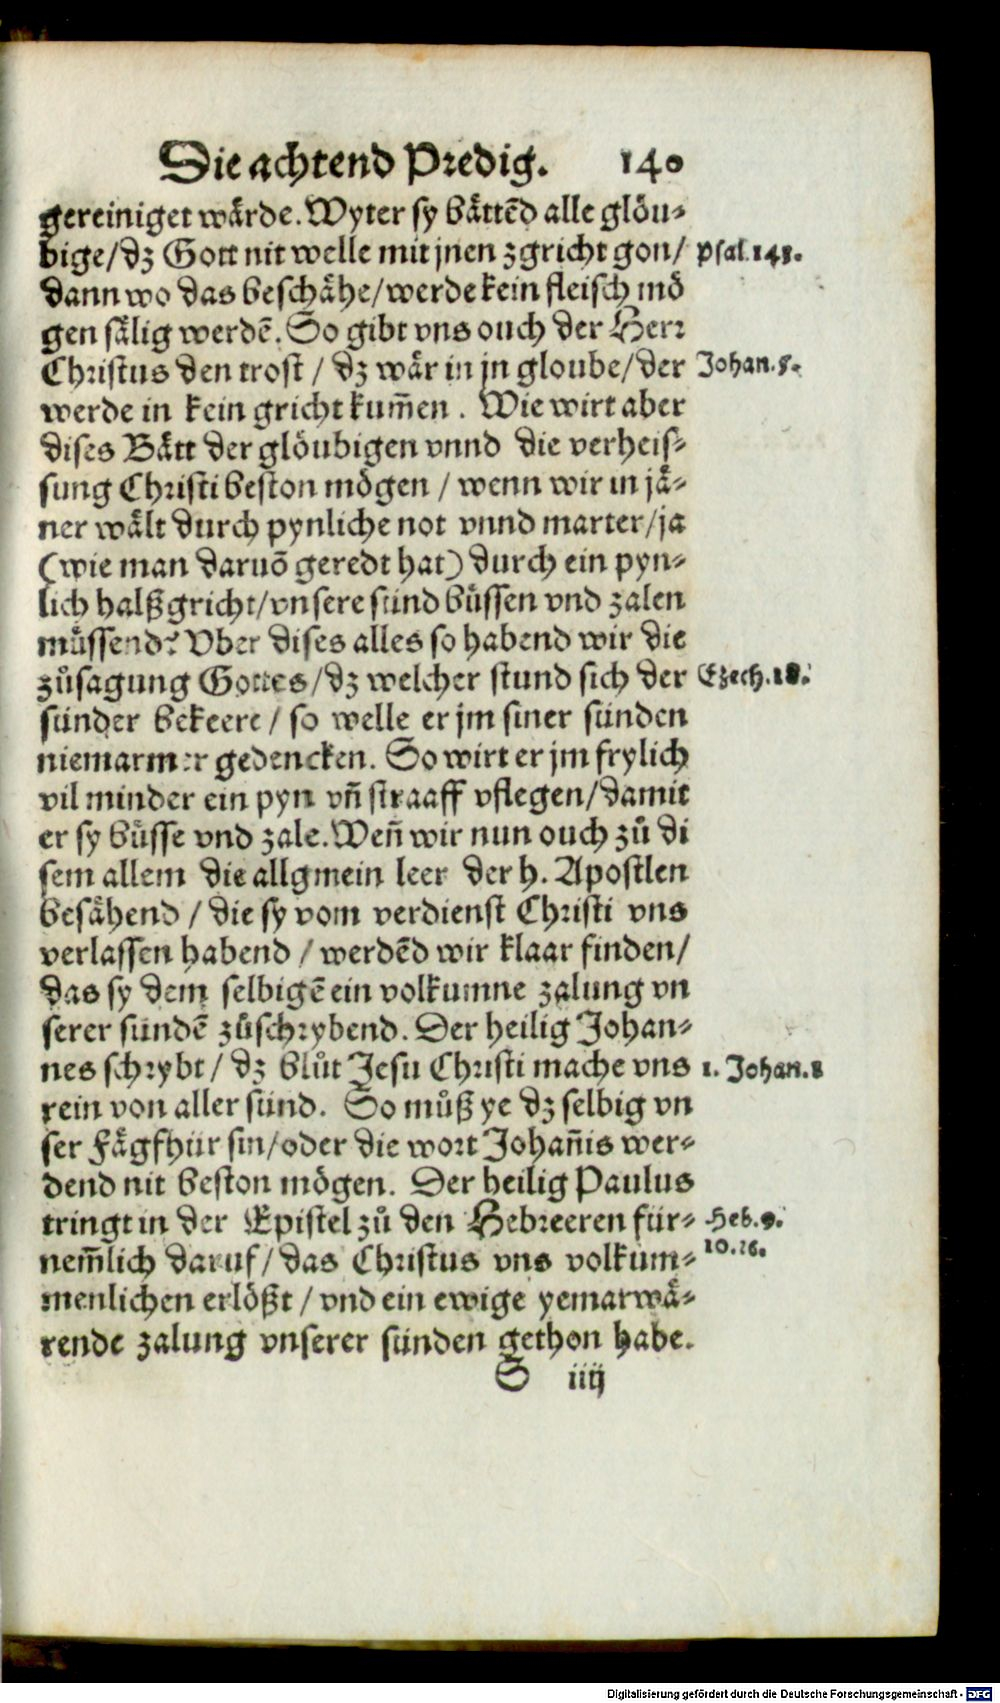 Die achtend Predig. 140
gereiniget wärde. Wyter sy bättēd alle glöu-
bige / dz Gott nit welle mit jnen zgricht gon / Psal. 143.
dann wo das beschähe / werde kein fleisch mö
gen sälig werdē. So gibt vns ouch der Herr
Christus den trost / dz wär in jn gloube / der Johan. 5.
werde in kein gricht kum̄en . Wie wirt aber
dises Bätt der glöubigen vnnd die verheis-
sung Christi beston mögen / wenn wir in jä-
ner wält durch pynliche not vnnd marter / ja
(wie man daruō geredt hat) durch ein pyn-
lich halßgricht / vnsere sünd büssen vnd zalen
müssend? Vber dises alles so habend wir die
zůsagung Gottes / dz welcher stund sich der Ezech. 18.
sünder bekeere / so welle er jm siner sünden
niemarmer gedencken. So wirt er jm frylich
vil minder ein pyn vn̄ straaff vflegen / damit
er sy büsse vnd zale. Wen̄ wir nun ouch zů di
sem allem die allgmein leer der h. Apostlen
besähend / die sy vom verdienst Christi vns
verlassen habend / werdēd wir klaar finden /
das sy dem selbigē ein volkumne zalung vn
serer sündē zůschrybend. Der heilig Johan-
nes schrybt / dz blůt Jesu Christi mache vns 1. Johan. 1
rein von aller sünd. So můß ye dz selbig vn
ser Fägfhür sin / oder die wort Johan̄is wer-
dend nit beston mögen. Der heilig Paulus
tringt in der Epistel zů den Hebreeren für- Heb. 9.
nem̄lich daruf / das Christus vns volkum- 10. 16.
menlichen erlößt / vnd ein ewige yemarwä-
rende zalung vnserer sünden gethon habe.
S iiij
Digitalisierung gefördert durch die Deutsche Forschungsgemeinschaft - DFG